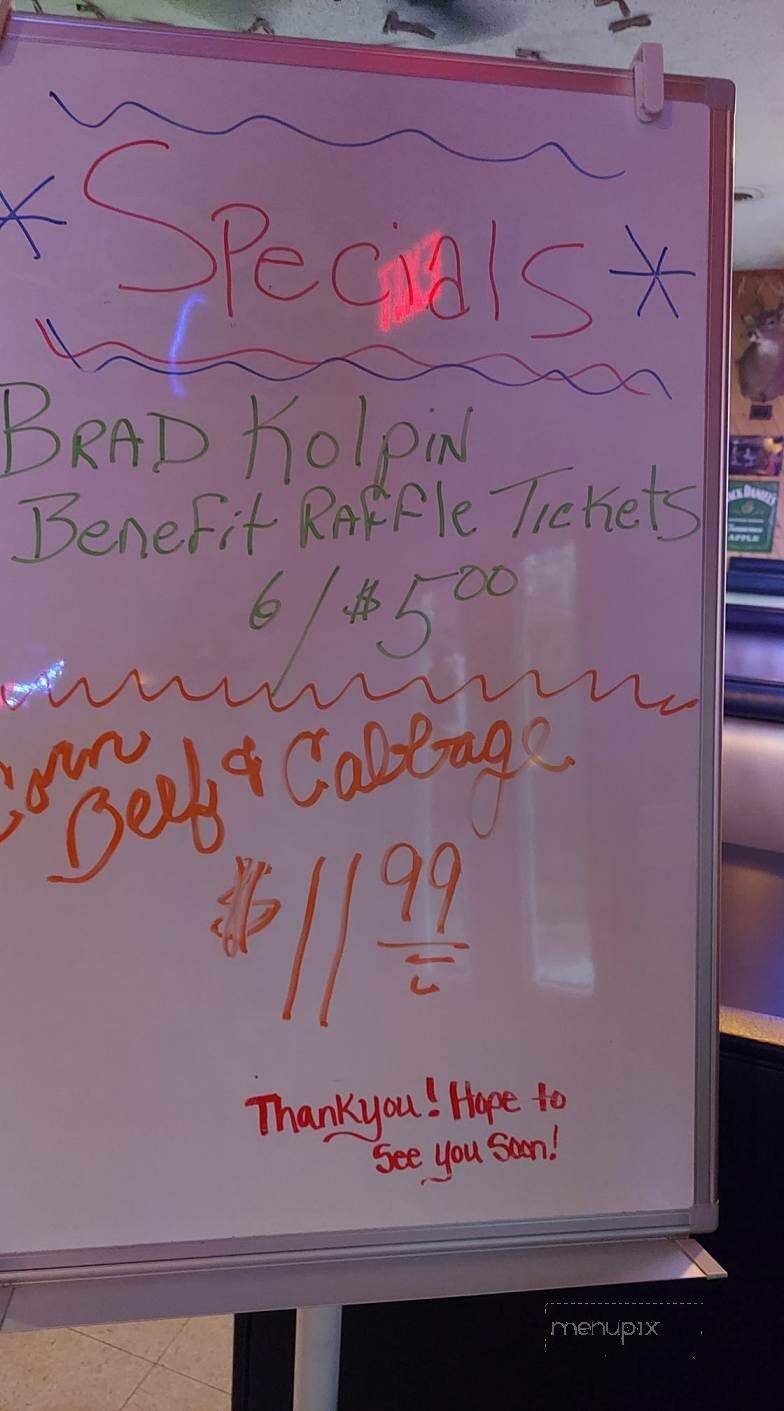 Specials
BRAD Kolpin
Benefit RAFFle Tickets
6/$5.00
Corn
Beef & Cabbage
$11.99
Thankyou! Hope to
See you Soon!
JACK DANIEL'S
APPLE
menupix